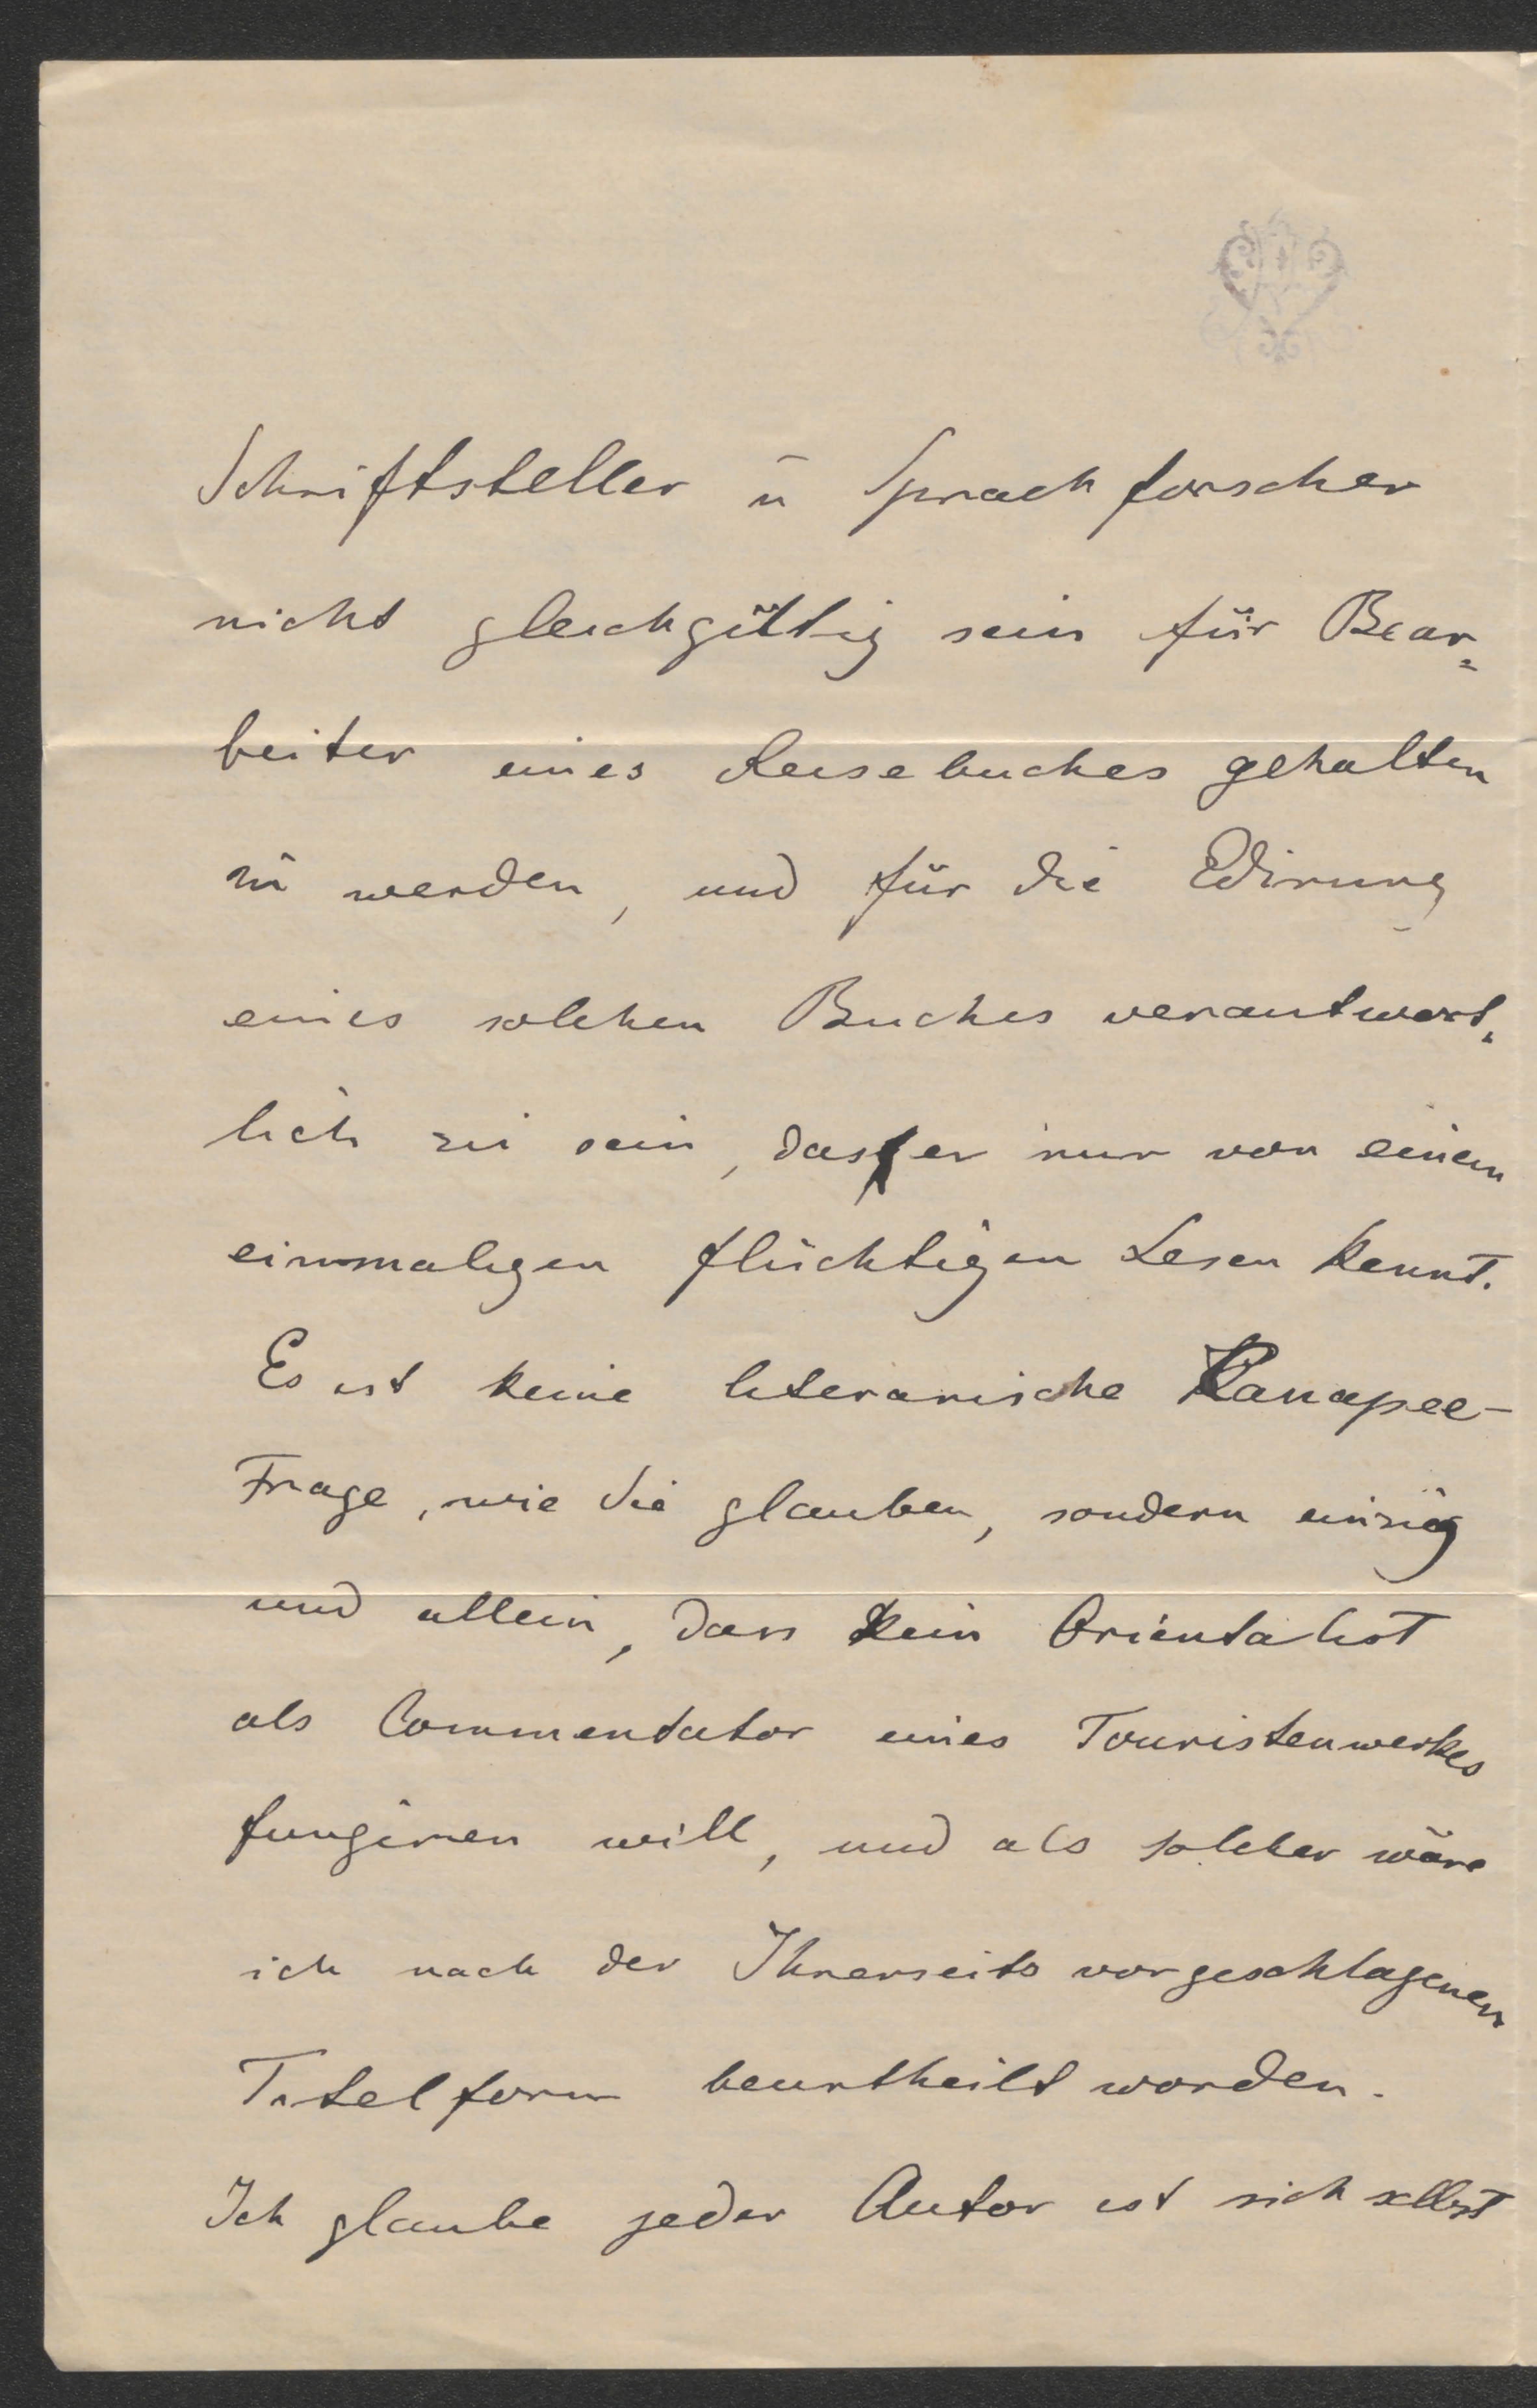 Schriftsteller ū Sprachforscher
nicht gleichgültig sein für Bear=
beiter eines Reisebuches gehalten
zu werden, und für die Edirung
eines solchen Buches verantwort=
lich zu sein, das er nur von einem
einmaligen flüchtigen Lesen kennt.
Es ist keine literarische Kanapee-
Frage, wie Sie glauben, sondern einzig
und allein, dass kein Orientalist
als Commentator eines Touristenwerkes
fungiren will, und als solcher wäre
ich nach der Ihrerseits vorgeschlagenen
Titelform beurtheilt worden.
Ich glaube jeder Autor ist sich selbst